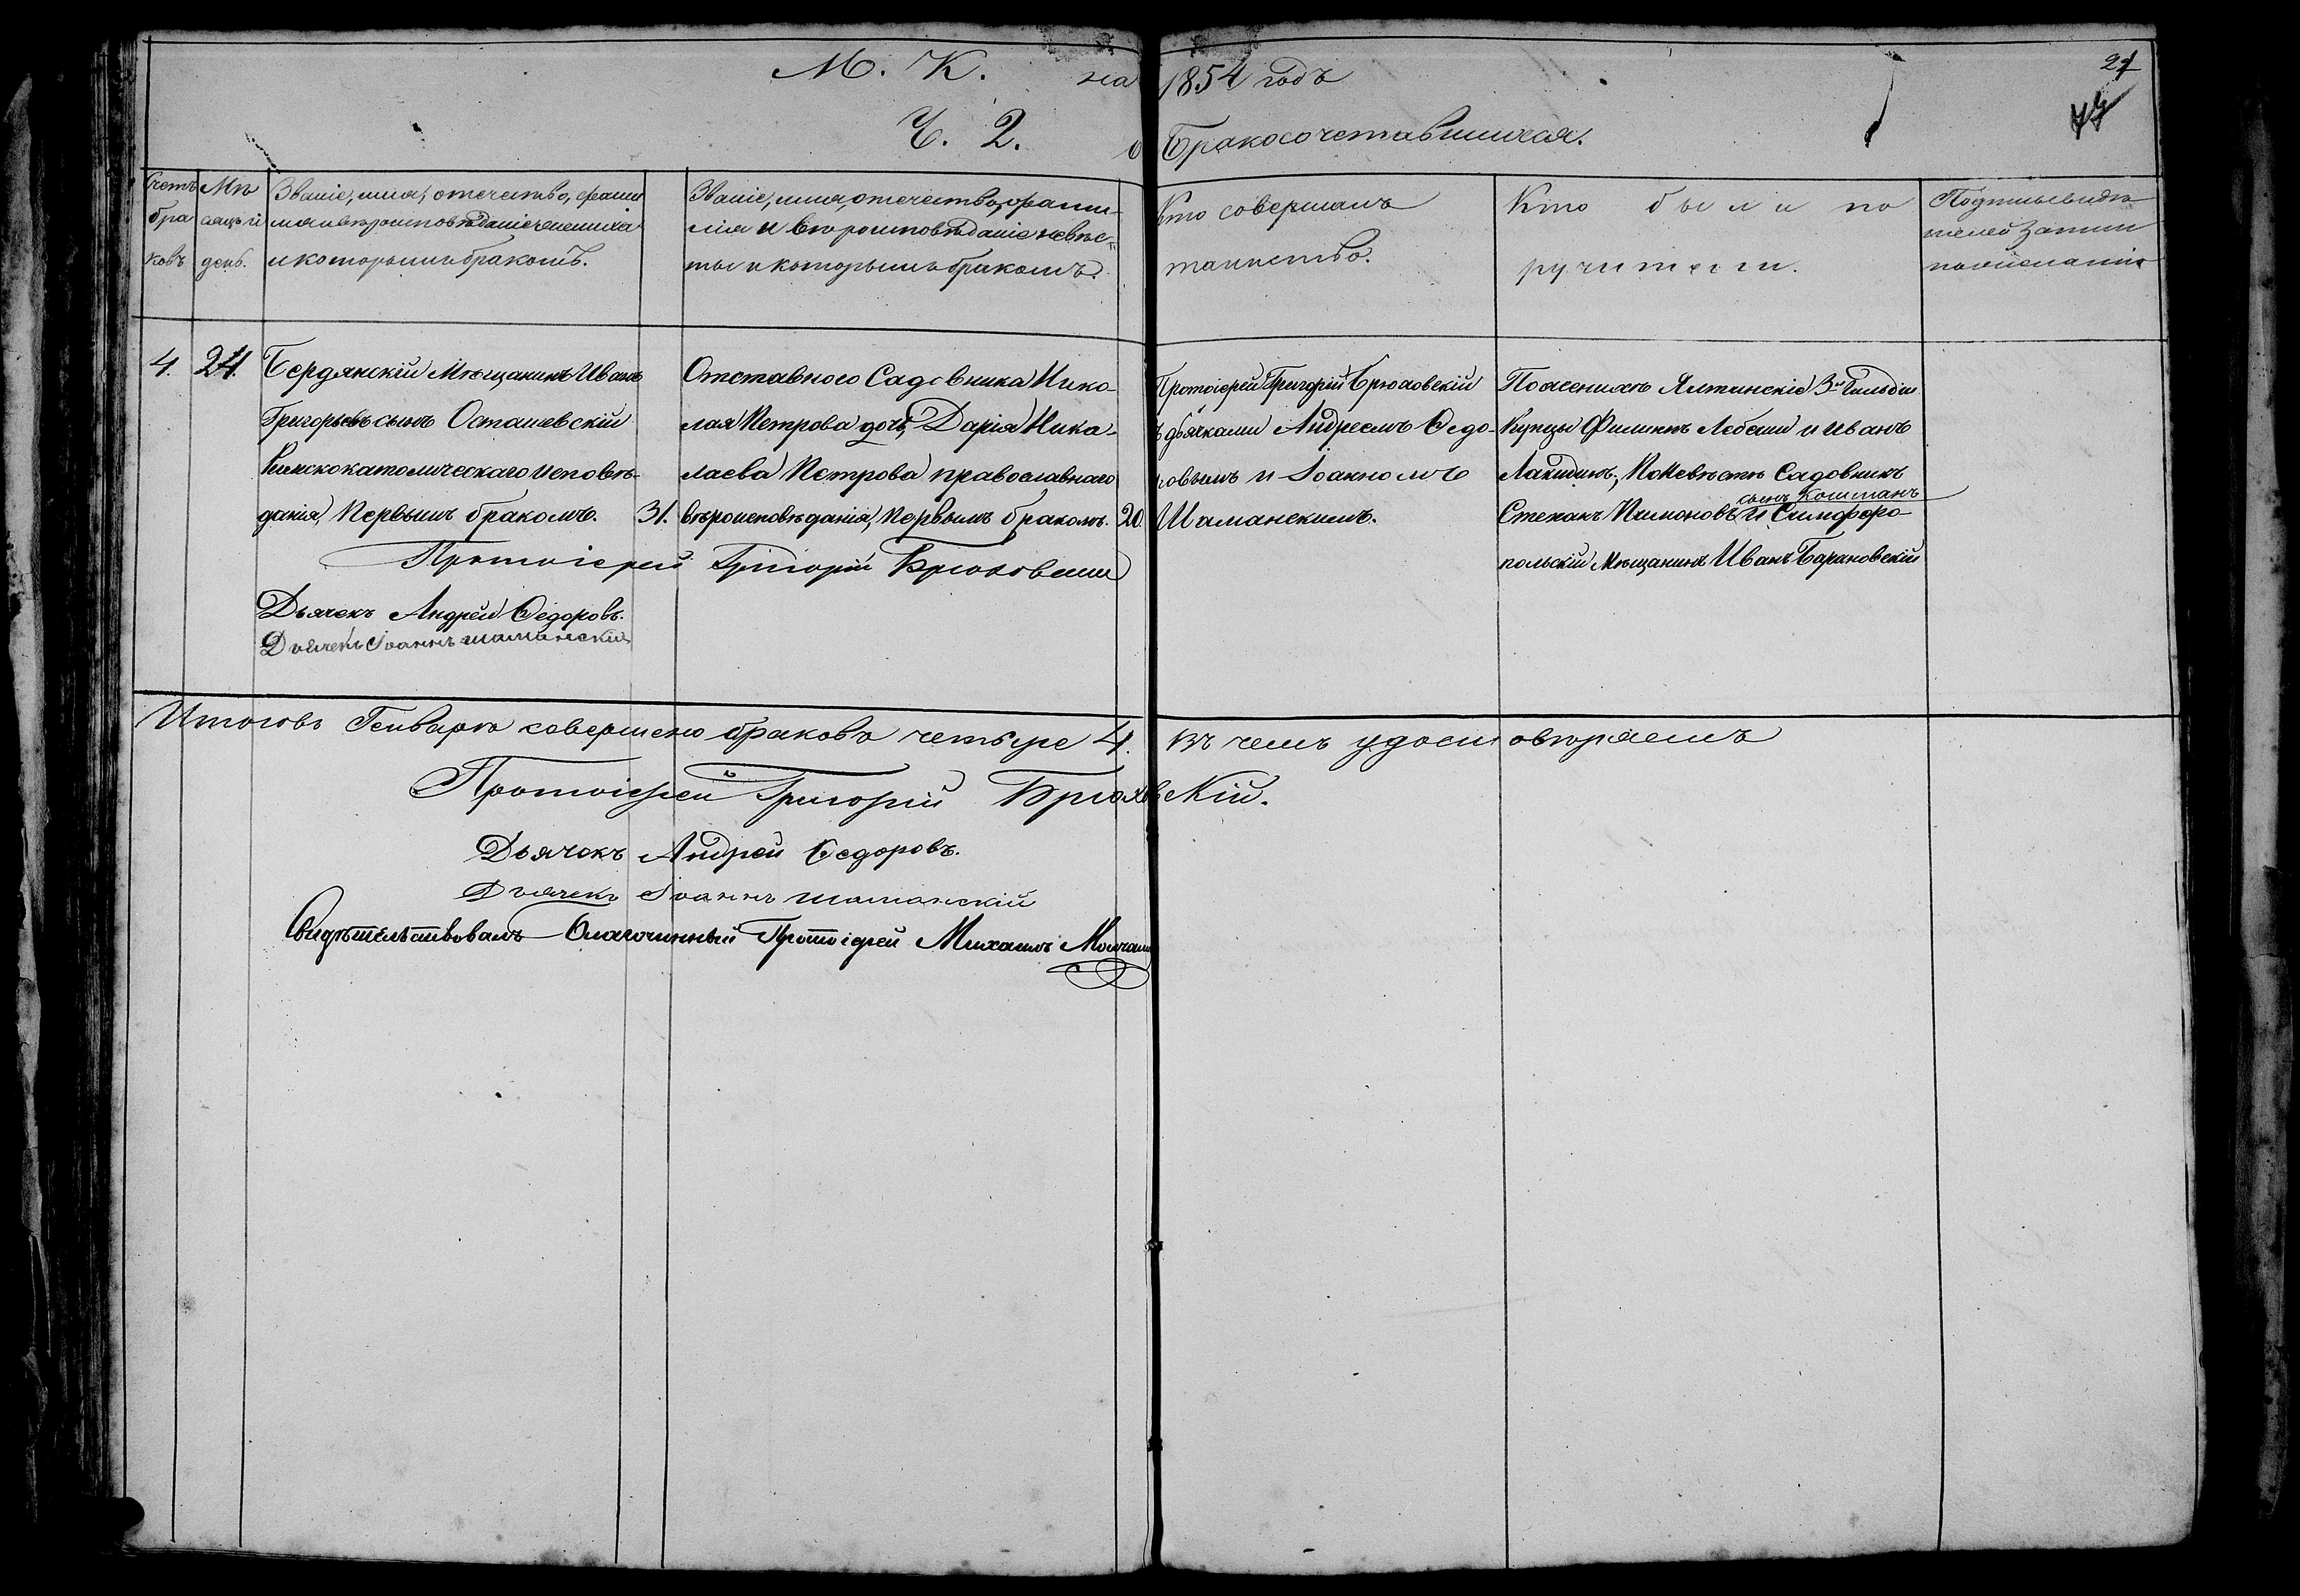 М. К. на 1854 годъ
21
Ч. 2. о Бракосочетавшихся.
Счетъ браковъ
Мѣсяцъ и день.
Званіе, имя, отечество, фамилія и вѣроисповѣданіе жениха
и которымъ бракомъ.
Званіе, имя, отечество, фами-
лія и вѣроисповѣданіе невѣс-
ты и которымъ бракомъ.
Кто совершалъ
таинство.
Кто были по
ручители.
Подпись свидѣ
телей записи
по желанію
4. 24.
Бердянскій Мѣщанинъ Иванъ
Григорьевъ сынъ Осташевскій
Римскокатолическаго исповѣ-
данія, Первымъ бракомъ. 31.
Отставного Садовника Нико-
лая Петрова дочь, Дарія Нико-
лаева Петрова православнаго
вѣроисповѣданія, Первымъ бракомъ. 20.
Протоіерей Григорій Брюховскій
съ дьячками Андреемъ Ѳедо-
ровымъ и Іоанномъ
Шаманскимъ.
По женихѣ Ялтинскіе 3й Гильдіи
Купцы Филиппъ и Иванъ
По Невѣстѣ Садовникъ
сынъ Кошманъ
Степанъ и Симферо
польскій Мѣщанинъ Иванъ Барановскій
Протоіерей Григорій Брюховскій
Дьячекъ Андрей Ѳедоровъ.
Дьячекъ Іоаннъ Шаманскій
Итого въ Генварѣ совершено браковъ четыре 4. въ чемъ удостовѣряемъ
Протоіерей Григорій Брюховскій.
Дьячокъ Андрей Ѳедоровъ.
Дьячекъ Іоаннъ Шаманскій
Свидѣтельствовалъ Благочинный Протоіерей Михаилъ